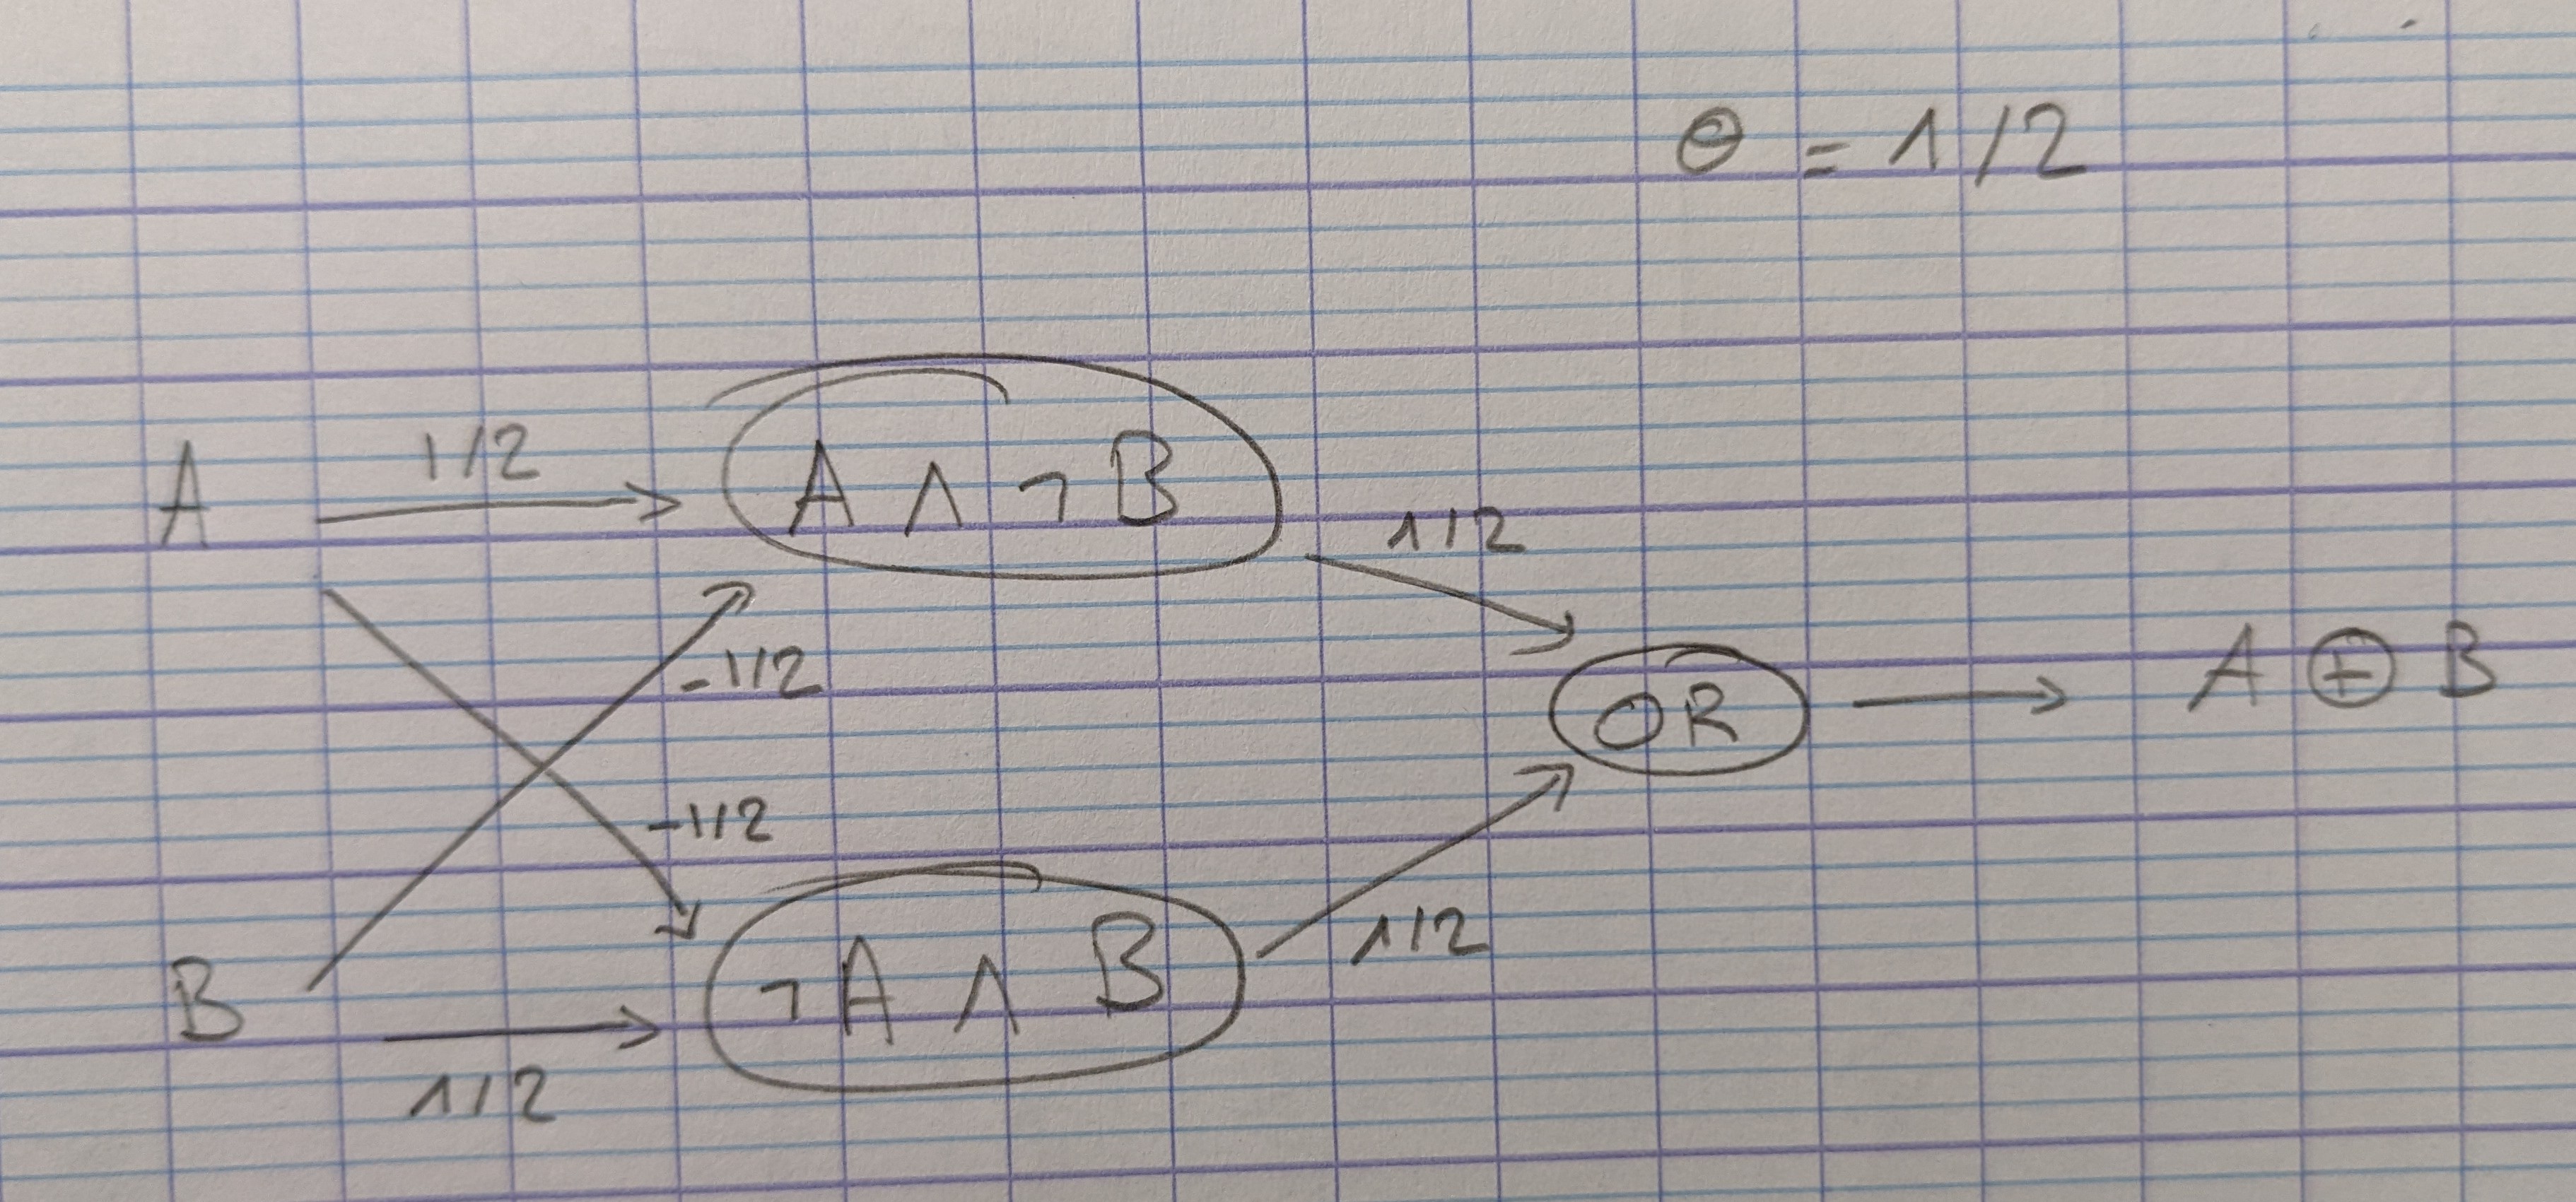 θ = 1/2
A
1/2
A ∧ ¬ B
1/2
-1/2
OR
A ⊕ B
-1/2
B
1/2
¬ A ∧ B
1/2